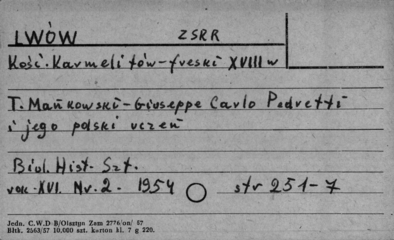 LWÓW ZSRR
Kość. Karmelitów - freski XVIII w
T. Mańkowski - Giuseppe Carlo Pedretti
i jego polski uczeń
Biul. Hist. Szt.
rok. XVI. Nr. 2. 1954 str 251-7
Jedn. C.W.D-B/Olsztyn Zam 2776/on/ 57
Bltk. 2563/57 10.000 szt. karton kl. 7 g 220.